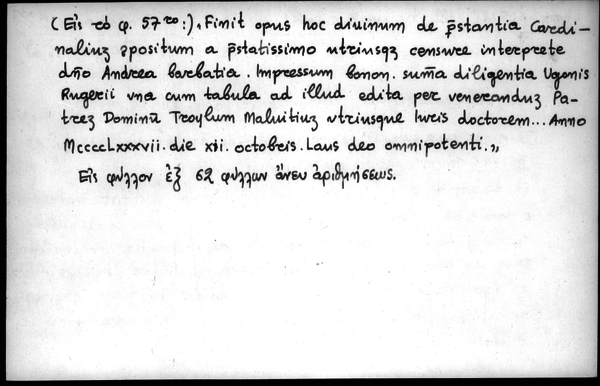 (Εἰς τὸ φ. 57ᵛᵒ:) „Finit opus hoc diuinum de p̄stantia Cardi-
naliuʒ ꝓpositum a p̄statissimo utriusqʒ censure interprete
dn̄o Andrea barbatia. Impressum bonon. sum̄a diligentia Ugonis
Rugerii vna cum tabula ad illud edita per veneranduʒ Pa-
treʒ Dominū Troylum Maluitiuʒ vtriusque Iuris doctorem... Anno
MccccLxxxvii. die xii. octobris. Laus deo omnipotenti.„
Εἰς φύλλον ἐξ 62 φύλλων ἄνευ ἀριθμήσεως.